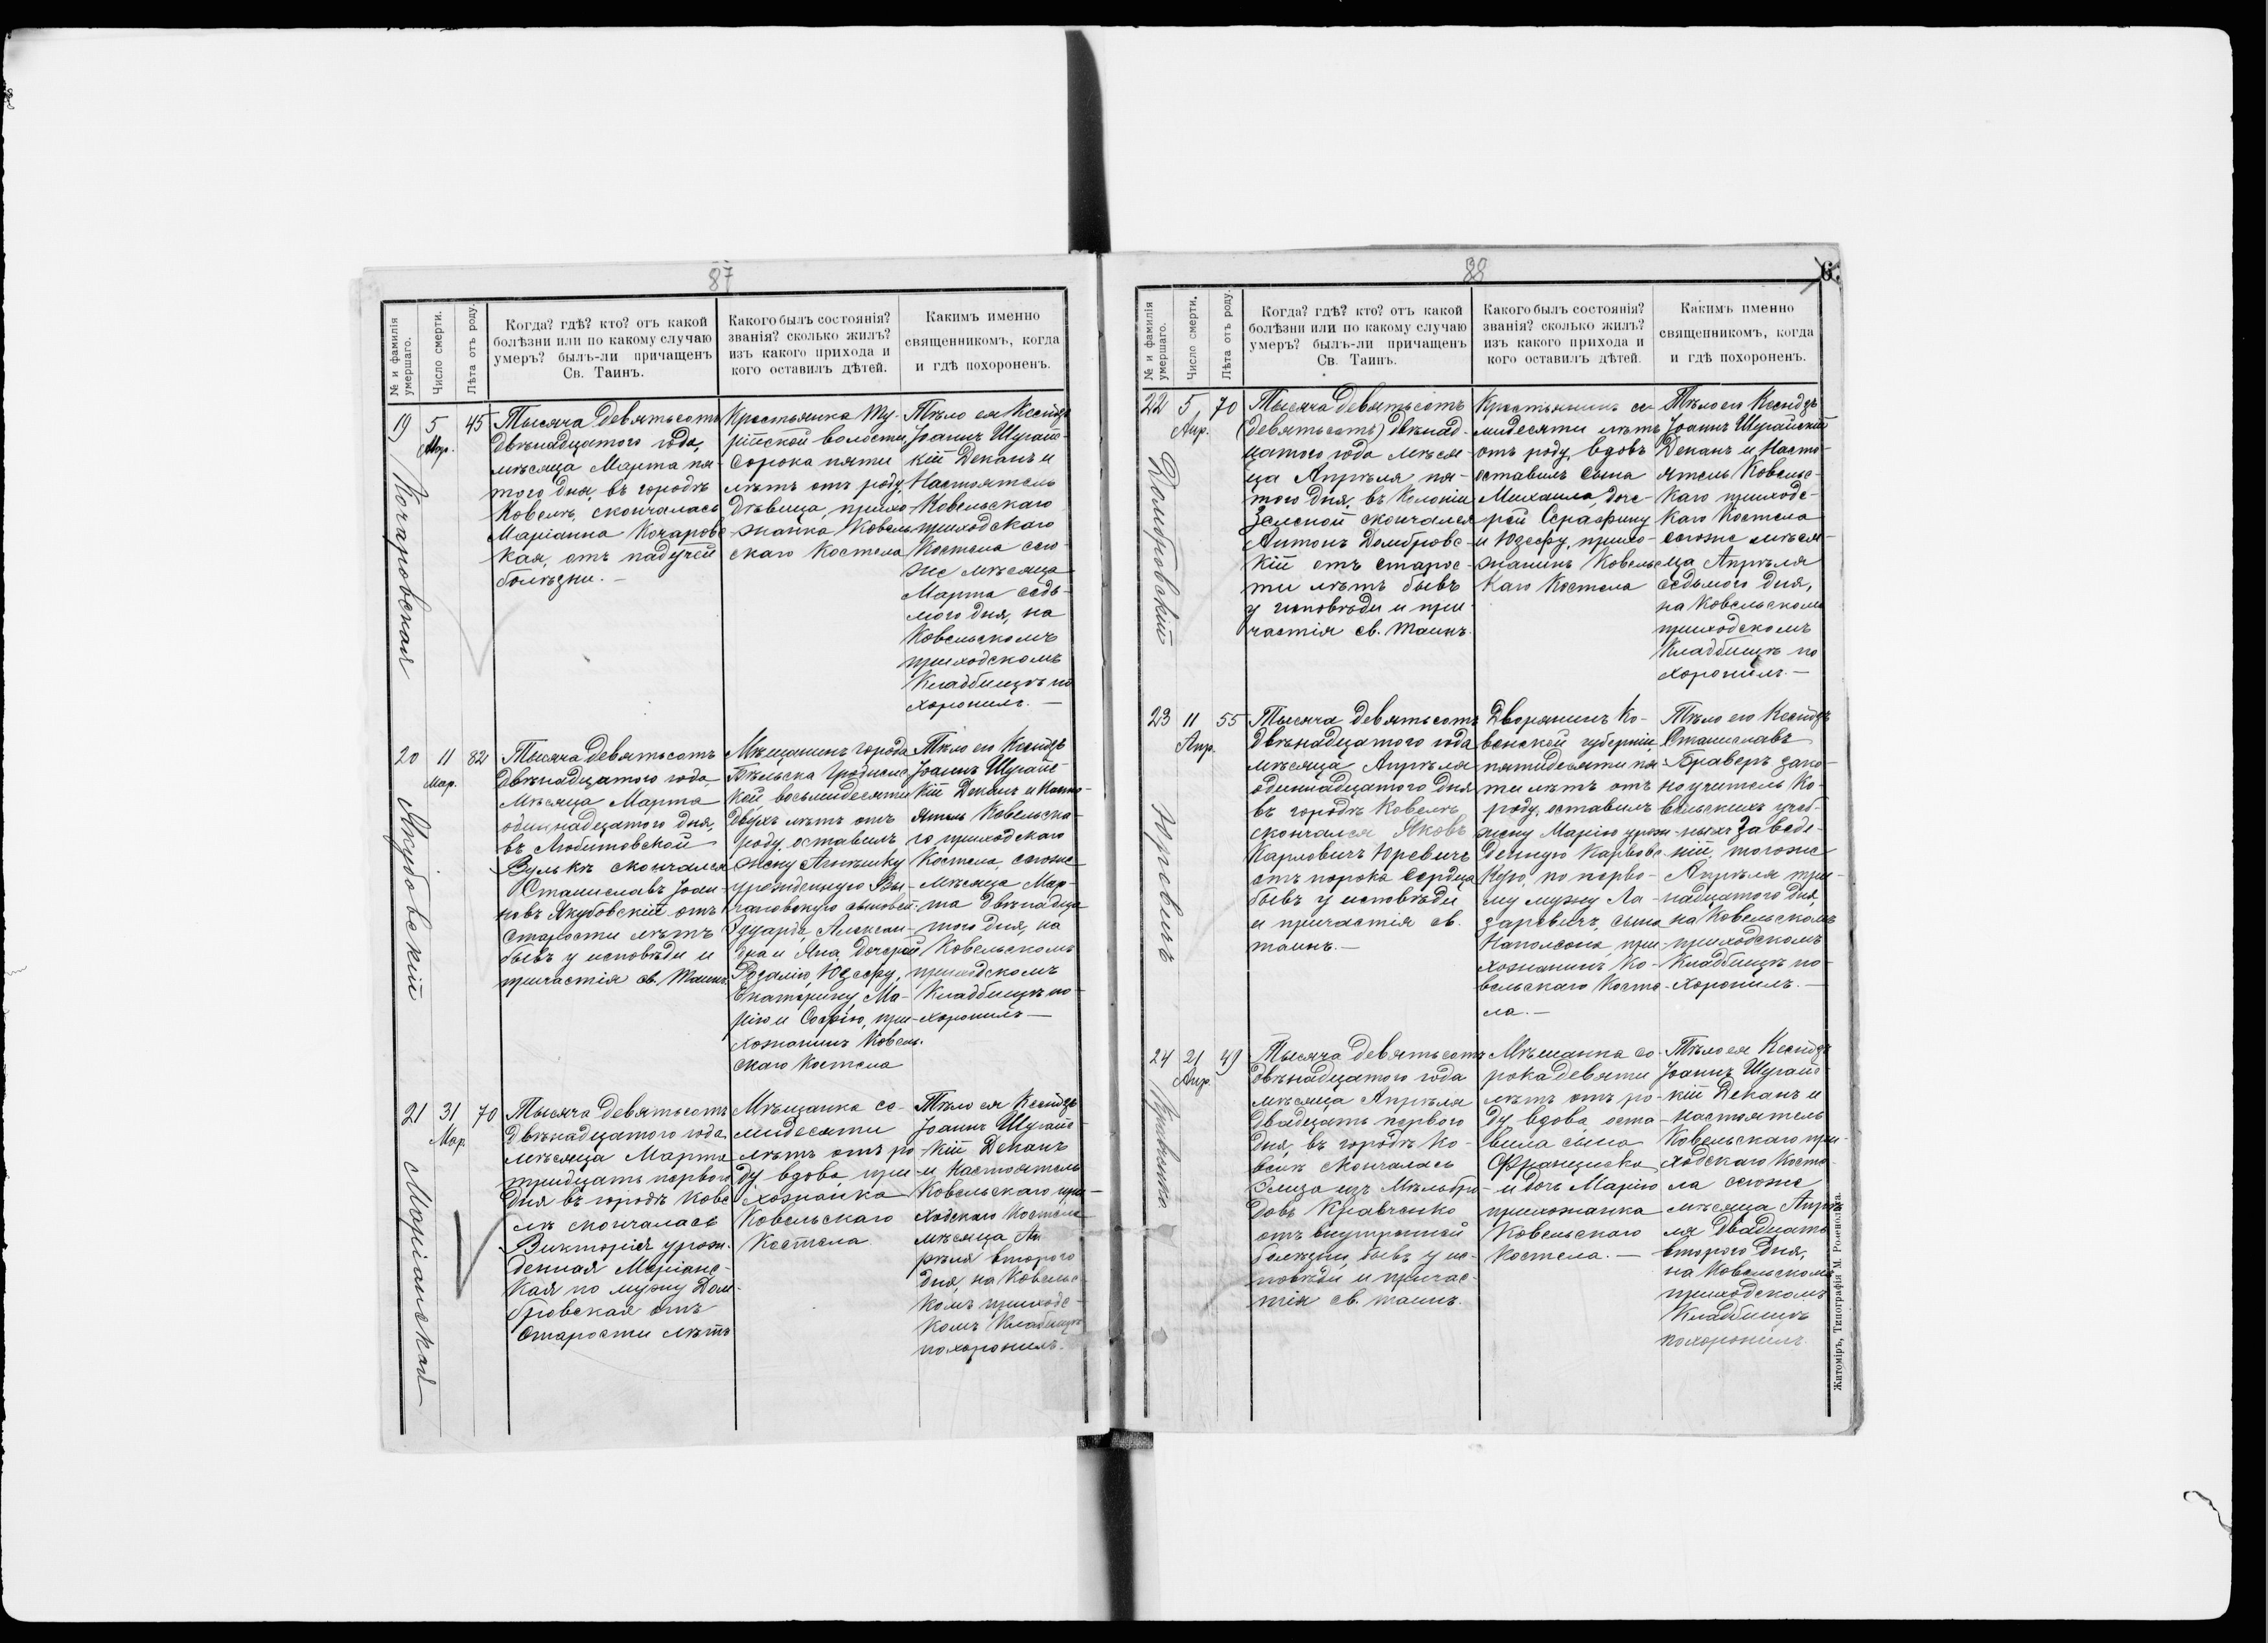 87
№ и фамилія умершаго.
Число смерти.
Лѣта отъ роду.
Когда? гдѣ? кто? отъ какой
болѣзни или по какому случаю
умеръ? былъ-ли причащенъ
Св. Таинъ.
Какого былъ состоянія?
званія? сколько жилъ?
изъ какого прихода и
кого оставилъ дѣтей.
Какимъ именно
священникомъ, когда
и гдѣ похороненъ.
19
Кочаровская
5
Мар.
45
Тысяча девятьсотъ
двѣнадцатого года,
мѣсяца Марта пя-
того дня, въ городѣ
Ковелѣ, скончалась
Маріанна Кочаровс-
кая, отъ падучей
болѣзни. —
Крестьянка Ту-
рійской волости,
сорока пяти
лѣтъ отъ роду,
дѣвица, прихо-
жанка Ковель-
скаго костела
Тѣло ея Ксендзъ
Іоаннъ Шугайс-
кій Деканъ и
Настоятель
Ковельскаго
приходскаго
Костела сего
же мѣсяца
Марта седь-
мого дня, на
Ковельскомъ
приходскомъ
Кладбищѣ по
хоронилъ. —
20
Якубовскій
11
Мар.
82
Тысяча девятьсотъ
двѣнадцатого года,
Мѣсяца Марта
одиннадцатого дня,
въ Любитовской
Вулькѣ скончался
Станиславъ Іоан-
новъ Якубовскій отъ
старости лѣтъ
бывъ у исповѣди и
причастія св. Таинъ.
Мѣщанинъ города
Бѣльска Гродненс-
кой, восьмидесяти
двухъ лѣтъ отъ
роду, оставилъ
жену Агнешку
урожденную Вы-
сыновей:
Эдуарда, Алексан-
дра и Яна, дочерей
Розалію, Юзефу,
Екатерину, Ма-
рію и Софію, при-
хожанинъ Ковель-
скаго костела
Тѣло его Ксендзъ
Іоаннъ Шугайс-
кій Деканъ и Насто-
ятель Ковельска-
го приходскаго
Костела, сегоже
Мѣсяца Мар-
та двѣнадца-
того дня, на
Ковельскомъ
приходскомъ
Кладбищѣ по-
хоронилъ —
21
Маріанская
31
Мар.
70
Тысяча девятьсотъ
двѣнадцатого года
мѣсяца Марта
тридцать перваго
дня въ городѣ Кове
лѣ скончалась
Викторія урож-
денная Маріанс-
кая по мужу Дом-
бровская отъ
старости лѣтъ
Мѣщанка се-
мидесяти
лѣтъ отъ ро
ду, вдова, при-
хожанка
Ковельскаго
Костела
Тѣло ея Ксендзъ
Іоаннъ Шугайс-
кій Деканъ
и Настоятель
Ковельскаго при-
ходскаго Костела
мѣсяца Ап
рѣля второго
дня, на Ковельс-
комъ приходс-
комъ Кладбищѣ
похоронилъ.
88
6.
№ и фамилія умершаго.
Число смерти.
Лѣта отъ роду.
Когда? гдѣ? кто? отъ какой
болѣзни или по какому случаю
умеръ? былъ-ли причащенъ
Св. Таинъ.
Какого былъ состоянія?
званія? сколько жилъ?
изъ какого прихода и
кого оставилъ дѣтей.
Какимъ именно
священникомъ, когда
и гдѣ похороненъ.
22
Домбровскій
5
Апр.
70
Тысяча девятьсотъ
(девятьсотъ) двѣнад-
цатого года мѣся-
ца Апрѣля пя-
того дня, въ Колоніи
Зеленой скончался
Антонъ Домбровс-
кій отъ старос-
ти лѣтъ бывъ
у исповѣди и при-
частія св. таинъ.
Крестьянинъ се-
мидесяти лѣтъ
отъ роду, вдовъ
оставилъ сына
Михаила, доче-
рей Серафину
и Юзефу, прихо-
жанинъ Ковельс-
каго Костела
Тѣло его Ксендзъ
Іоаннъ Шугайскій
Деканъ и Насто-
ятель Ковельс-
каго приходс-
каго Костела
сегоже мѣся-
ца Апрѣля
седьмого дня,
на Ковельскомъ
приходскомъ
Кладбищѣ по
хоронилъ. —
23
Юревичъ
11
Апр.
55
Тысяча девятьсотъ
двѣнадцатого года
мѣсяца Апрѣля
одиннадцатого дня
въ городѣ Ковелѣ
скончался Яковъ
Карловичъ Юревичъ
отъ порока сердца
бывъ у исповѣди
и причастія св.
таинъ. —
Дворянинъ Ко-
венской губерніи,
пятидесяти пя-
ти лѣтъ отъ
роду, оставилъ
жену Марію урож-
денную Карвовс-
кую, по перво-
му мужу Ла-
заревичъ, сына
Наполеона, при-
хожанинъ Ко-
вельскаго Косте-
ла. —
Тѣло его Ксендзъ
Станиславъ
Браверъ зако-
ноучитель Ко-
вельскихъ учеб-
ныхъ Заведе-
ній, тогоже
Апрѣля три-
надцатого дня,
на Ковельскомъ
приходскомъ
Кладбищѣ по-
хоронилъ. —
24
Кравченко
21
Апр.
49
Тысяча девятьсотъ
двѣнадцатого года
мѣсяца Апрѣля
двадцать перваго
дня, въ городѣ Ко-
велѣ скончалась
Элиза изъ Мѣльбри-
довъ Кравченко
отъ внутренней
болѣзни, бывъ у ис-
повѣди и причас-
тія св. таинъ.
Мѣщанка со-
рока девяти
лѣтъ отъ ро-
ду, вдова, оста-
вила сына
Францишка
и дочь Марію
прихожанка
Ковельскаго
Костела. —
Тѣло ея Ксендзъ
Іоаннъ Шугайс-
кій Деканъ и
Настоятель
Ковельскаго при-
ходскаго Косте-
ла сегоже
мѣсяца Апрѣ-
ля двадцать
второго дня,
на Ковельскомъ
приходскомъ
Кладбищѣ
похоронилъ.
Житоміръ, Типографія М. Розенблата.